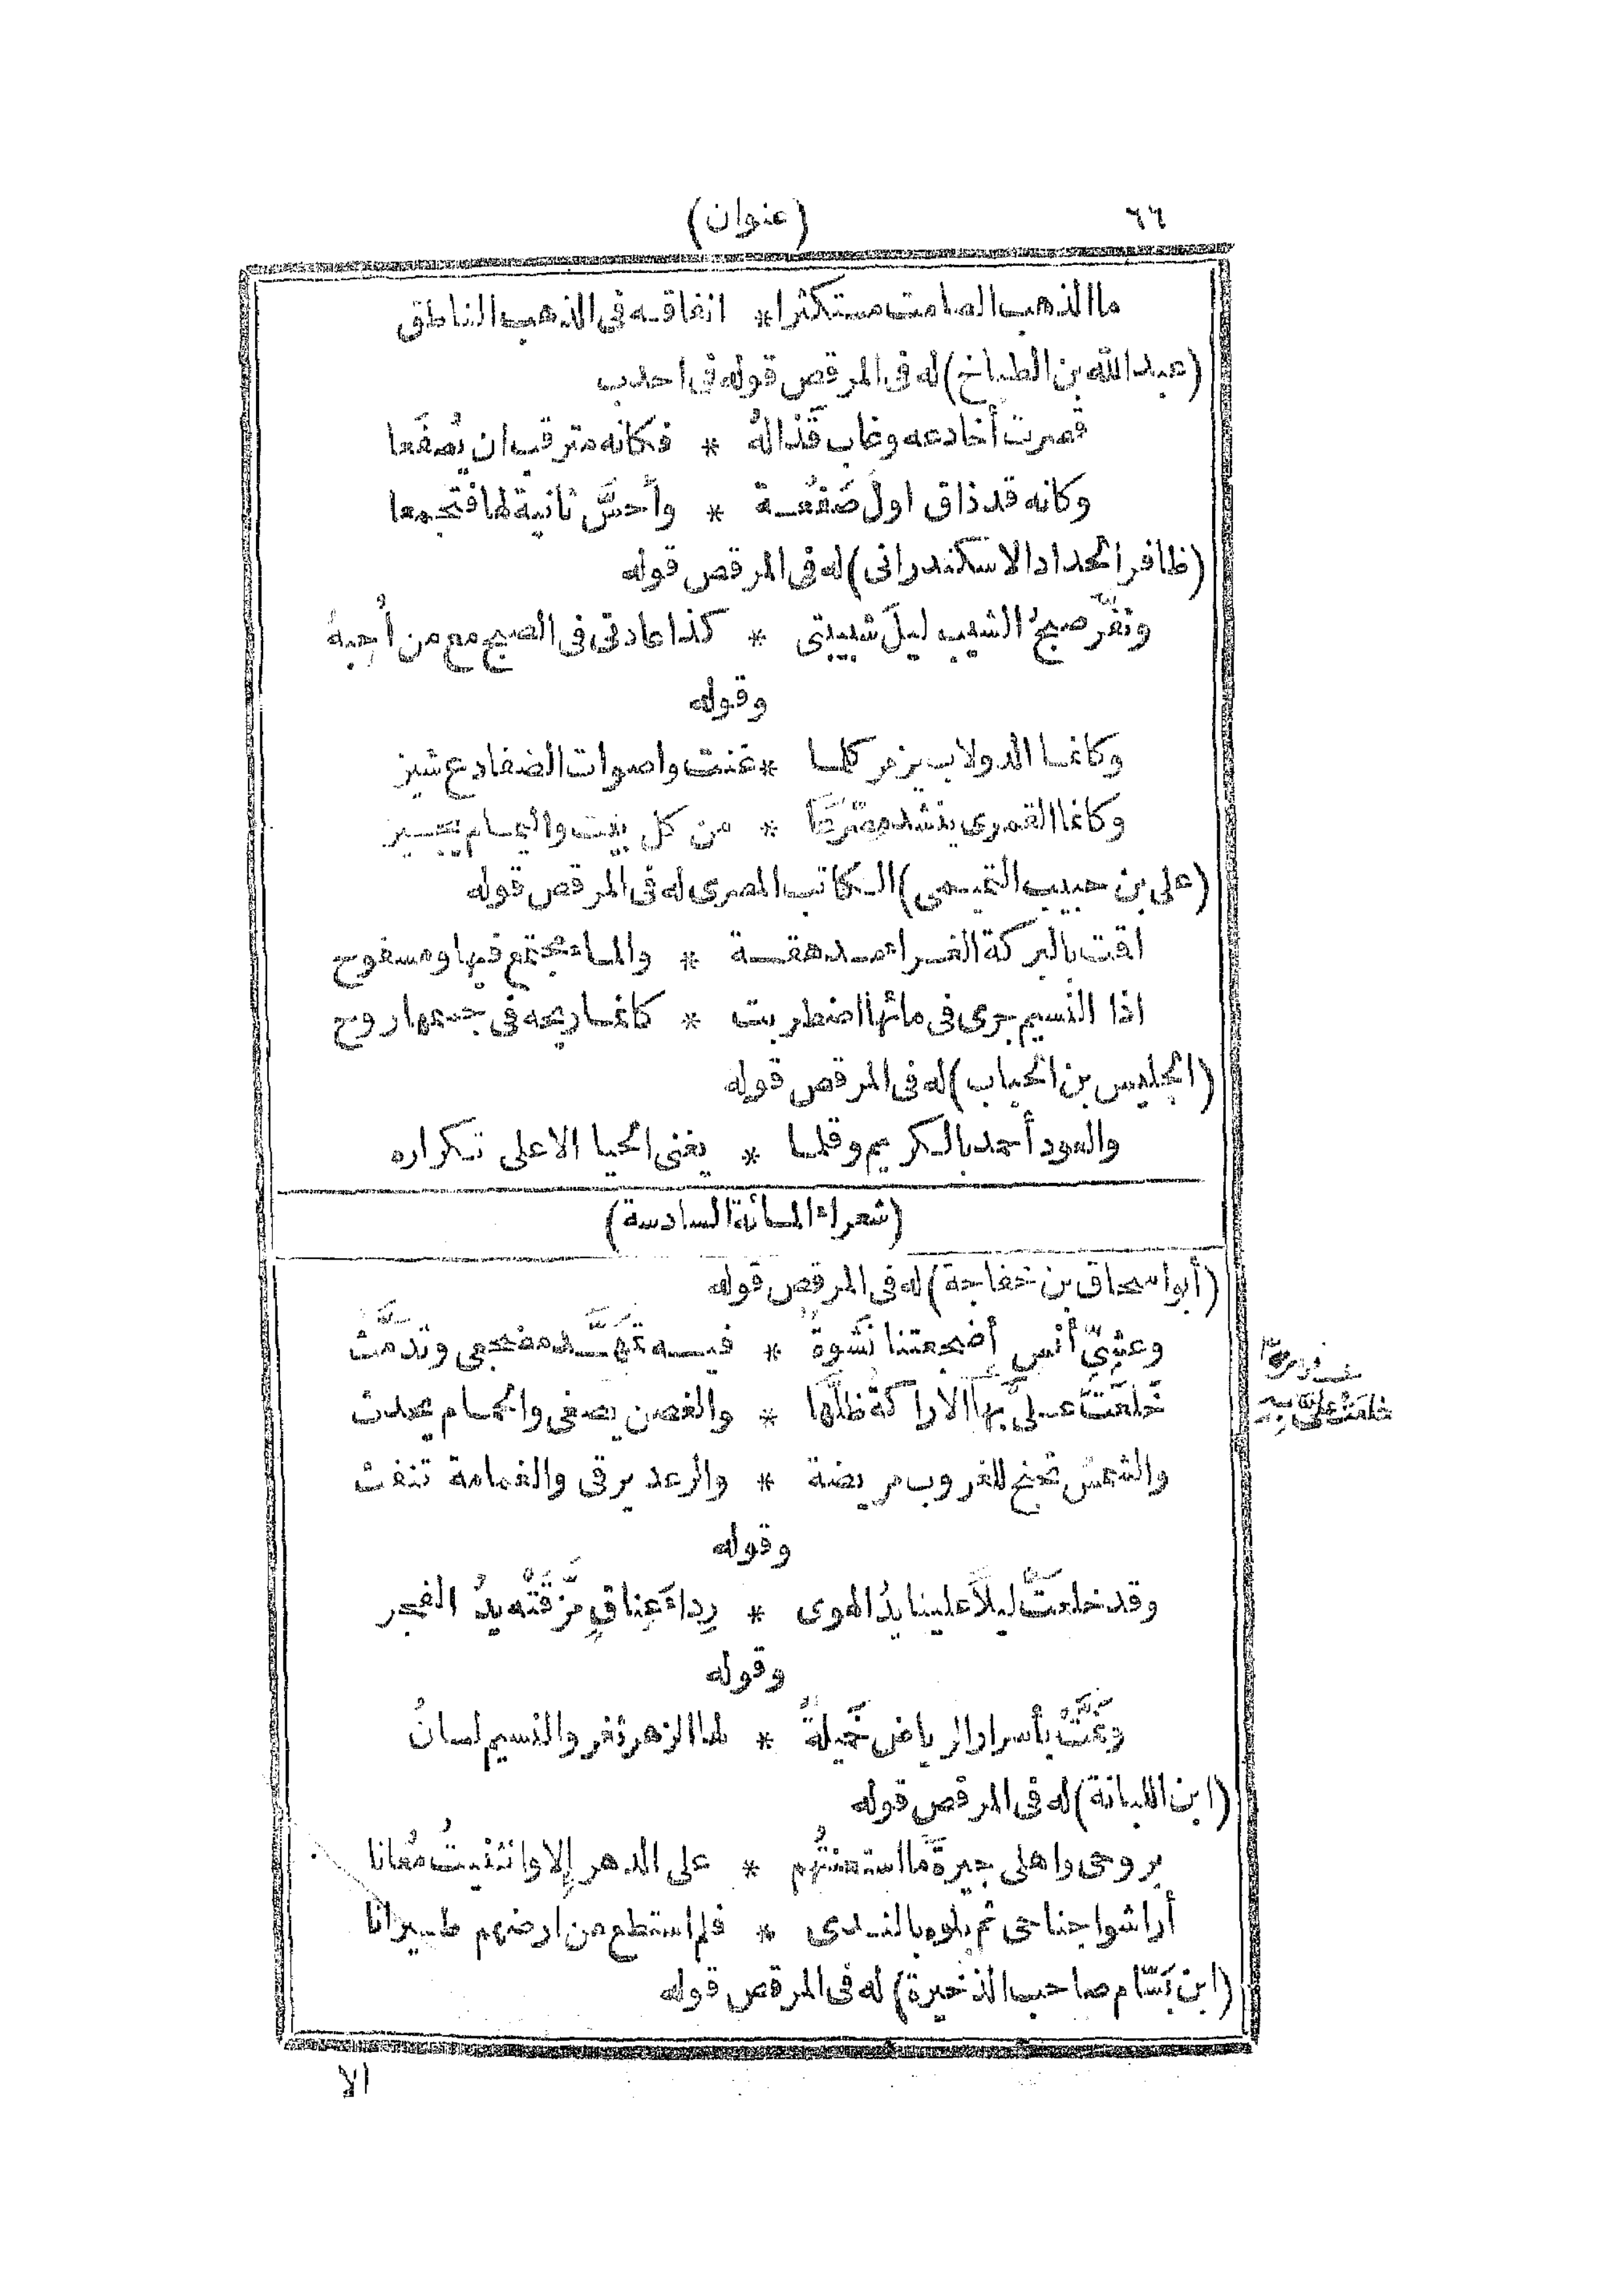 ٦٦
(عنوان)
ما الذهب الصامت مستكثرا * انفاقه فى الذهب الناطق
(عبد الله بن الطباخ) له فى المرقص قوله فى احدب
قصرت أخادعه وغاب قَذالُه * فكانه مترقب ان يُصفَعا
وكانه قد ذاق اولَ صَفْعة * وأحسَّ ثانية لها فتجمعا
(ظافر الحداد الاسكندرانى) له فى المرقص قوله
ونفّر صبحُ الشيب ليلَ شبيبتى * كذا عادتى فى الصبح مع من أُحِبهُ
وقوله
وكانما الدولاب يزمر كلما * غنت واصوات الضفادع شيز
وكانما القمرى ينشد مصْرَعًا * من كل بيت واليمام يجيز
(على بن حبيب التميمى) الكاتب المصرى له فى المرقص قوله
اقمت بالبركة الغراء مدهقة * والماء مجتمع فيها ومسفوح
اذا النسيم جرى فى مائها اضطربت * كانما ريحه فى جسمها روح
(الجليس بن الحباب) له فى المرقص قوله
والعود أحمد بالكريم وقلما * يغنى الحيا الاعلى تكراره
(شعراء المائة السادسة)
(أبو اسحاق بن خفاجة) له فى المرقص قوله
وعشِىِّ أنسٍ أضجعتنا نَشْوةٌ * فيه تَمَهَّد مضجعى وتَدمَّث
خَلَعَتْ علىَّ بها الاراكةُ ظلَّها * والغصن يصغى والحمام يحدث
والشمس تجنح للغروب مريضة * والرعد يرقى والغمامة تنفث
وقوله
وقد خلعتْ ليلاً علينا يدُ الهوى * رِداءَ عِناقٍ مزّقَتْه يدُ الفجر
وقوله
ونَمَّتْ بأسرار الرياض خَميلةٌ * لها الزهر ثغر والنسيم لسانُ
(ابن اللبانة) له فى المرقص قوله
بروحى واهلى جيرةً ما استعنتُهم * على الدهر إلا وانثنيتُ مُعانا
أراشوا جناحى ثم بلوه بالندى * فلم استطع من ارضهم طيرانا
(ابن بَسّام صاحب الذخيرة) له فى المرقص قوله
الا